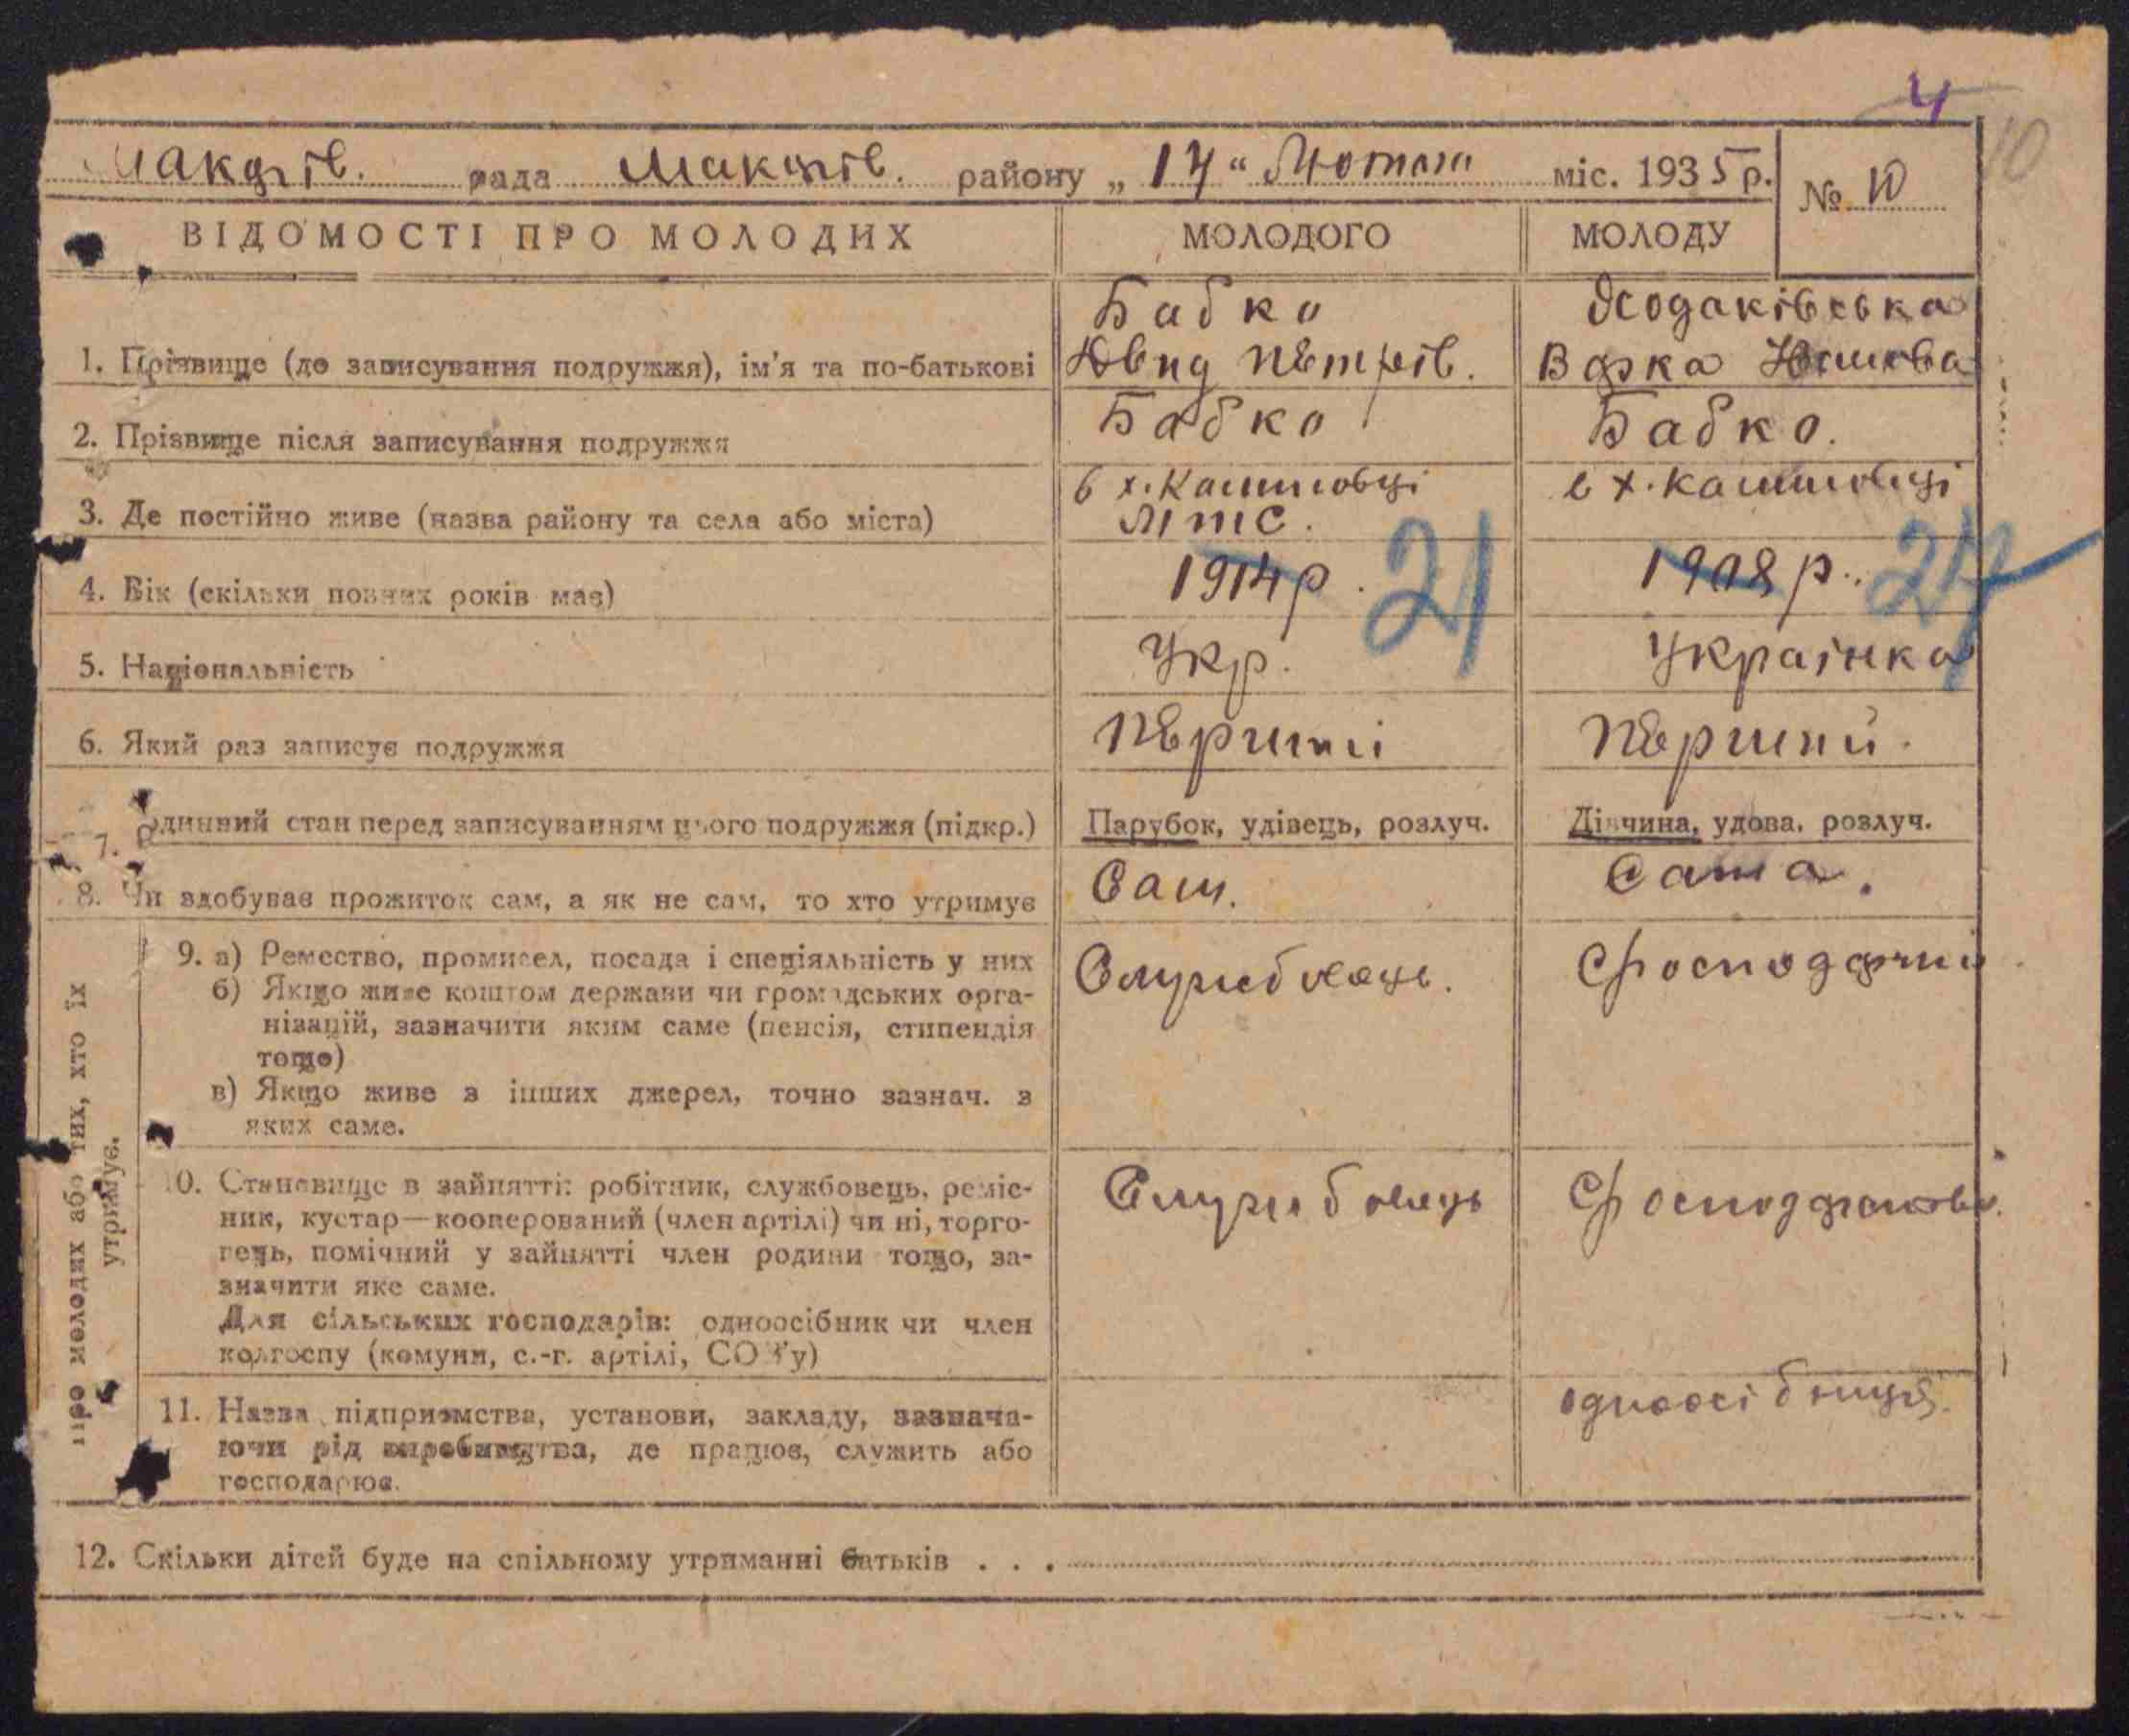 4
10
Макарів. рада Макарів. району „ 14 “ Лютого міс. 1935 р. № 10
ВІДОМОСТІ ПРО МОЛОДИХ МОЛОДОГО МОЛОДУ
Бабко Ходаківська
1. Прізвище (до записування подружжя), ім'я та по-батькові Петрів. Варка
2. Прізвище після записування подружжя Бабко Бабко.
3. Де постійно живе (назва району та села або міста) в х. Кашиловці в х. Кашиловці
МТС.
4. Вік (скільки повних років має) 1914 р. 21 1908 р. 27
5. Національність Укр. Украінка
6. Який раз записує подружжя Перший Перший.
7. Родинний стан перед записуванням цього подружжя (підкр.) Парубок, удівець, розлуч. Дівчина, удова, розлуч.
8. Чи здобуває прожиток сам, а як не сам, то хто утримує Сам. Сама.
про молодих або тих, хто їх
утримує.
9. а) Ремество, промисел, посада і спеціяльність у них Службовець.
б) Якщо живе коштом держави чи громадських орга-
нізацій, зазначити яким саме (пенсія, стипендія
тощо)
в) Якщо живе з інших джерел, точно зазнач. з
яких саме.
10. Становище в зайнятті: робітник, службовець, реміс- Службовець
ник, кустар—кооперований (член артілі) чи ні, торго-
вець, помічний у зайнятті член родини тощо, за-
значити яке саме.
Для сільських господарів: одноосібник чи член
колгоспу (комуни, с.-г. артілі, СОЗ'у)
11. Назва підприємства, установи, закладу, зазнача- одноосібниця.
ючи рід виробництва, де працює, служить або
господарює.
12. Скільки дітей буде на спільному утриманні батьків . . .